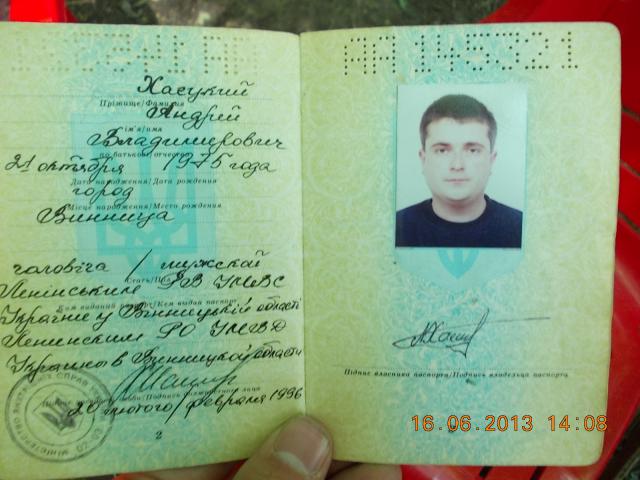 Хацукий
Прізвище/Фамилия
Андрей
ім'я/имя
Владимирович
по батькові/отчество
21 октября 1975 года
Дата народження/Дата рождения
город
Місце народження/Место рождения
Винница
чоловіча / мужской
Стать/Пол
Ленінським РВ УМВС
Ким виданий паспорт/Кем выдан паспорт
України у Вінницькій області
Ленинским РО УМВД
Украины в Винницкой области
20 лютого / февраля 1996
2
АА 145321
Підпис власника паспорта/Подпись владельца паспорта
16.06.2013 14:08